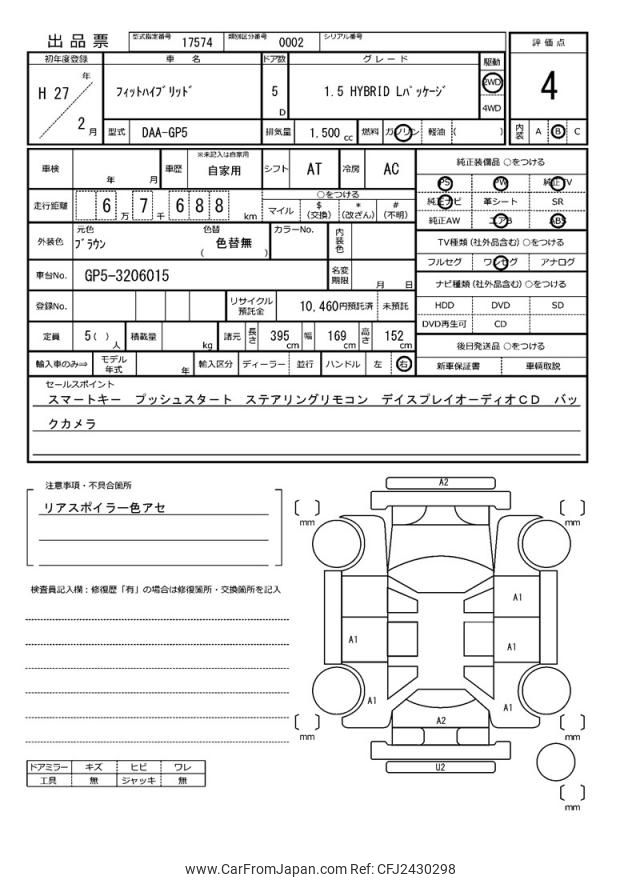 出品票 型式指定番号 17574 類別区分番号 0002 シリアル番号
初年度登録 車名 ドア数 グレード 駆動 評価点
H 27 年 2 月 フィットハイブリッド 5 D 1.5 HYBRID Lパッケージ 2WD 4WD 4
型式 DAA-GP5 排気量 1.500 cc 燃料 ガソリン 軽油 ( ) 内装 A B C
車検 年 月 車歴 ※未記入は自家用 自家用 シフト AT 冷房 AC
純正装備品 ○をつける
PS PW 純正TV
純正ナビ 革シート SR
純正AW エアB ABS
走行距離 6 万 7 千 6 8 8 km
○をつける
マイル $ (交換) * (改ざん) # (不明)
外装色 元色 ブラウン 色替 色替無 ( ) カラーNo. 内装色
TV種類 (社外品含む) ○をつける
フルセグ ワンセグ アナログ
車台No. GP5-3206015 名変期限 月 日
ナビ種類 (社外品含む) ○をつける
HDD DVD SD
DVD再生可 CD
登録No. リサイクル預託金 10,460円預託済 未預託
定員 5 ( ) 人 積載量 kg 諸元 長さ 395 cm 幅 169 cm 高さ 152 cm
後日発送品 ○をつける
新車保証書 車輌取説
輸入車のみ⇒ モデル年式 年 輸入区分 ディーラー 並行 ハンドル 左 右
セールスポイント
スマートキー プッシュスタート ステアリングリモコン デイスプレイオーディオCD バッ
クカメラ
注意事項・不具合箇所
リアスポイラー色アセ
検査員記入欄：修復歴「有」の場合は修復箇所・交換箇所を記入
A2
mm
mm
A1
A1
A1
A1
A1
A2
mm
mm
U2
mm
ドアミラー キズ ヒビ ワレ
工具 無 ジャッキ 無
www.CarFromJapan.com Ref: CFJ2430298